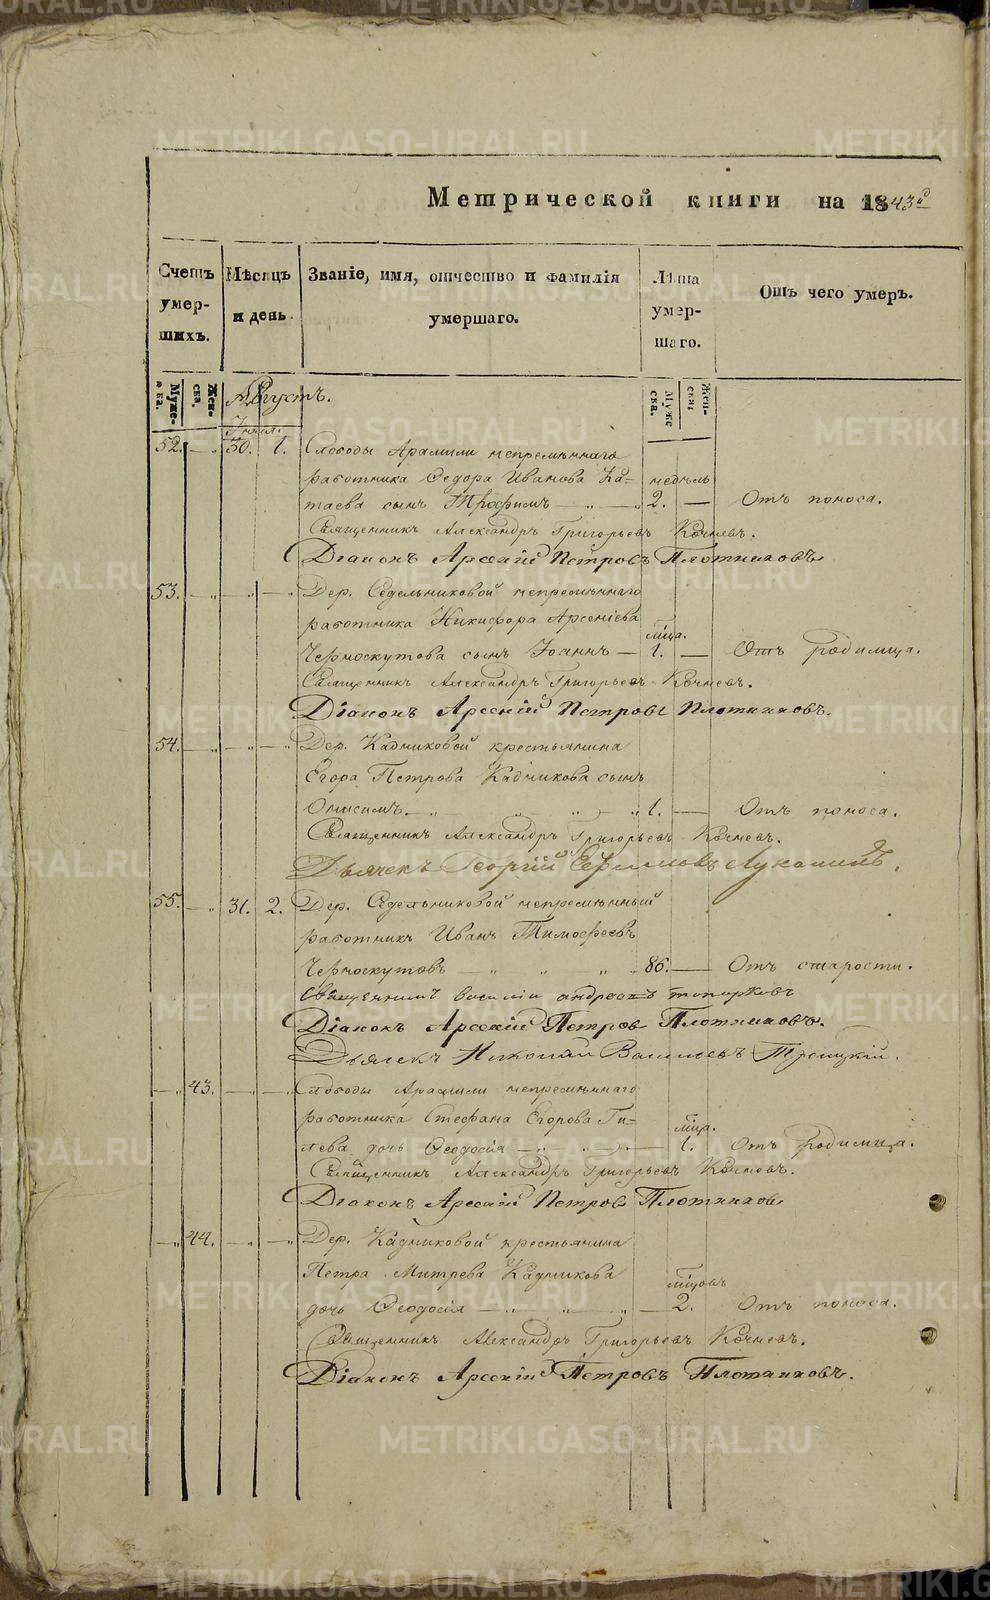 METRIKI.GASO-URAL.RU
Метрической книги на 1843й
Счетъ умершихъ.
Мѣсяцъ и день.
Званіе, имя, отчество и фамилія умершаго.
Лѣта умершаго.
Отъ чего умеръ.
Мужеска. Женска.
Мужеска. Женска.
Августъ.
Іюля.
52. — „ 30. 1. Слободы Арамили непремѣннаго
работника Ѳедора Иванова Ка- недѣль
таева сынъ Трофимъ — „ — „ 2. — Отъ поноса.
Священникъ Александръ Григорьевъ Кочневъ.
Діаконъ Арсеній Петровъ Плотниковъ
53. — „ — „ — „ Дер. Седельниковой непремѣннаго
работника Никифора Арсеніева
мѣсца.
Черноскутова сынъ Іоаннъ — 1. — Отъ родимца.
Священникъ Александръ Григорьевъ Кочневъ.
Діаконъ Арсеній Петровъ Плотниковъ.
54. — „ — „ — „ Дер. Кадниковой крестьянина
Егора Петрова Кадникова сынъ
Онисимъ. — „ „ „ 1. — Отъ поноса.
Священникъ Александръ Григорьевъ Кочневъ.
Дьячекъ Георгій Ефимовъ
55. — „ 31. 2. Дер. Седельниковой непремѣнный
работникъ Иванъ Тимофеевъ
Черноскутовъ — „ „ „ 86. — Отъ старости.
Священникъ василій андреевъ топорковъ
Діаконъ Арсеній Петровъ Плотниковъ.
Дьячекъ Николай Васильевъ Троицкій.
— „ 43. — „ — „ Слободы Арамили непремѣннаго
работника Стефана Егорова Ги-
мѣсца.
лева дочь Ѳеодосія — „ „ — 1. Отъ родимца.
Священникъ Александръ Григорьевъ Кочневъ.
Діаконъ Арсеній Петровъ Плотниковъ
— „ 44. — „ — „ Дер. Кадниковой крестьянина
Петра Митрева Кадникова
мѣсцовъ
дочь Ѳеодосія — „ „ „ — 2. Отъ поноса.
Священникъ Александръ Григорьевъ Кочневъ.
Діаконъ Арсеній Петровъ Плотниковъ.